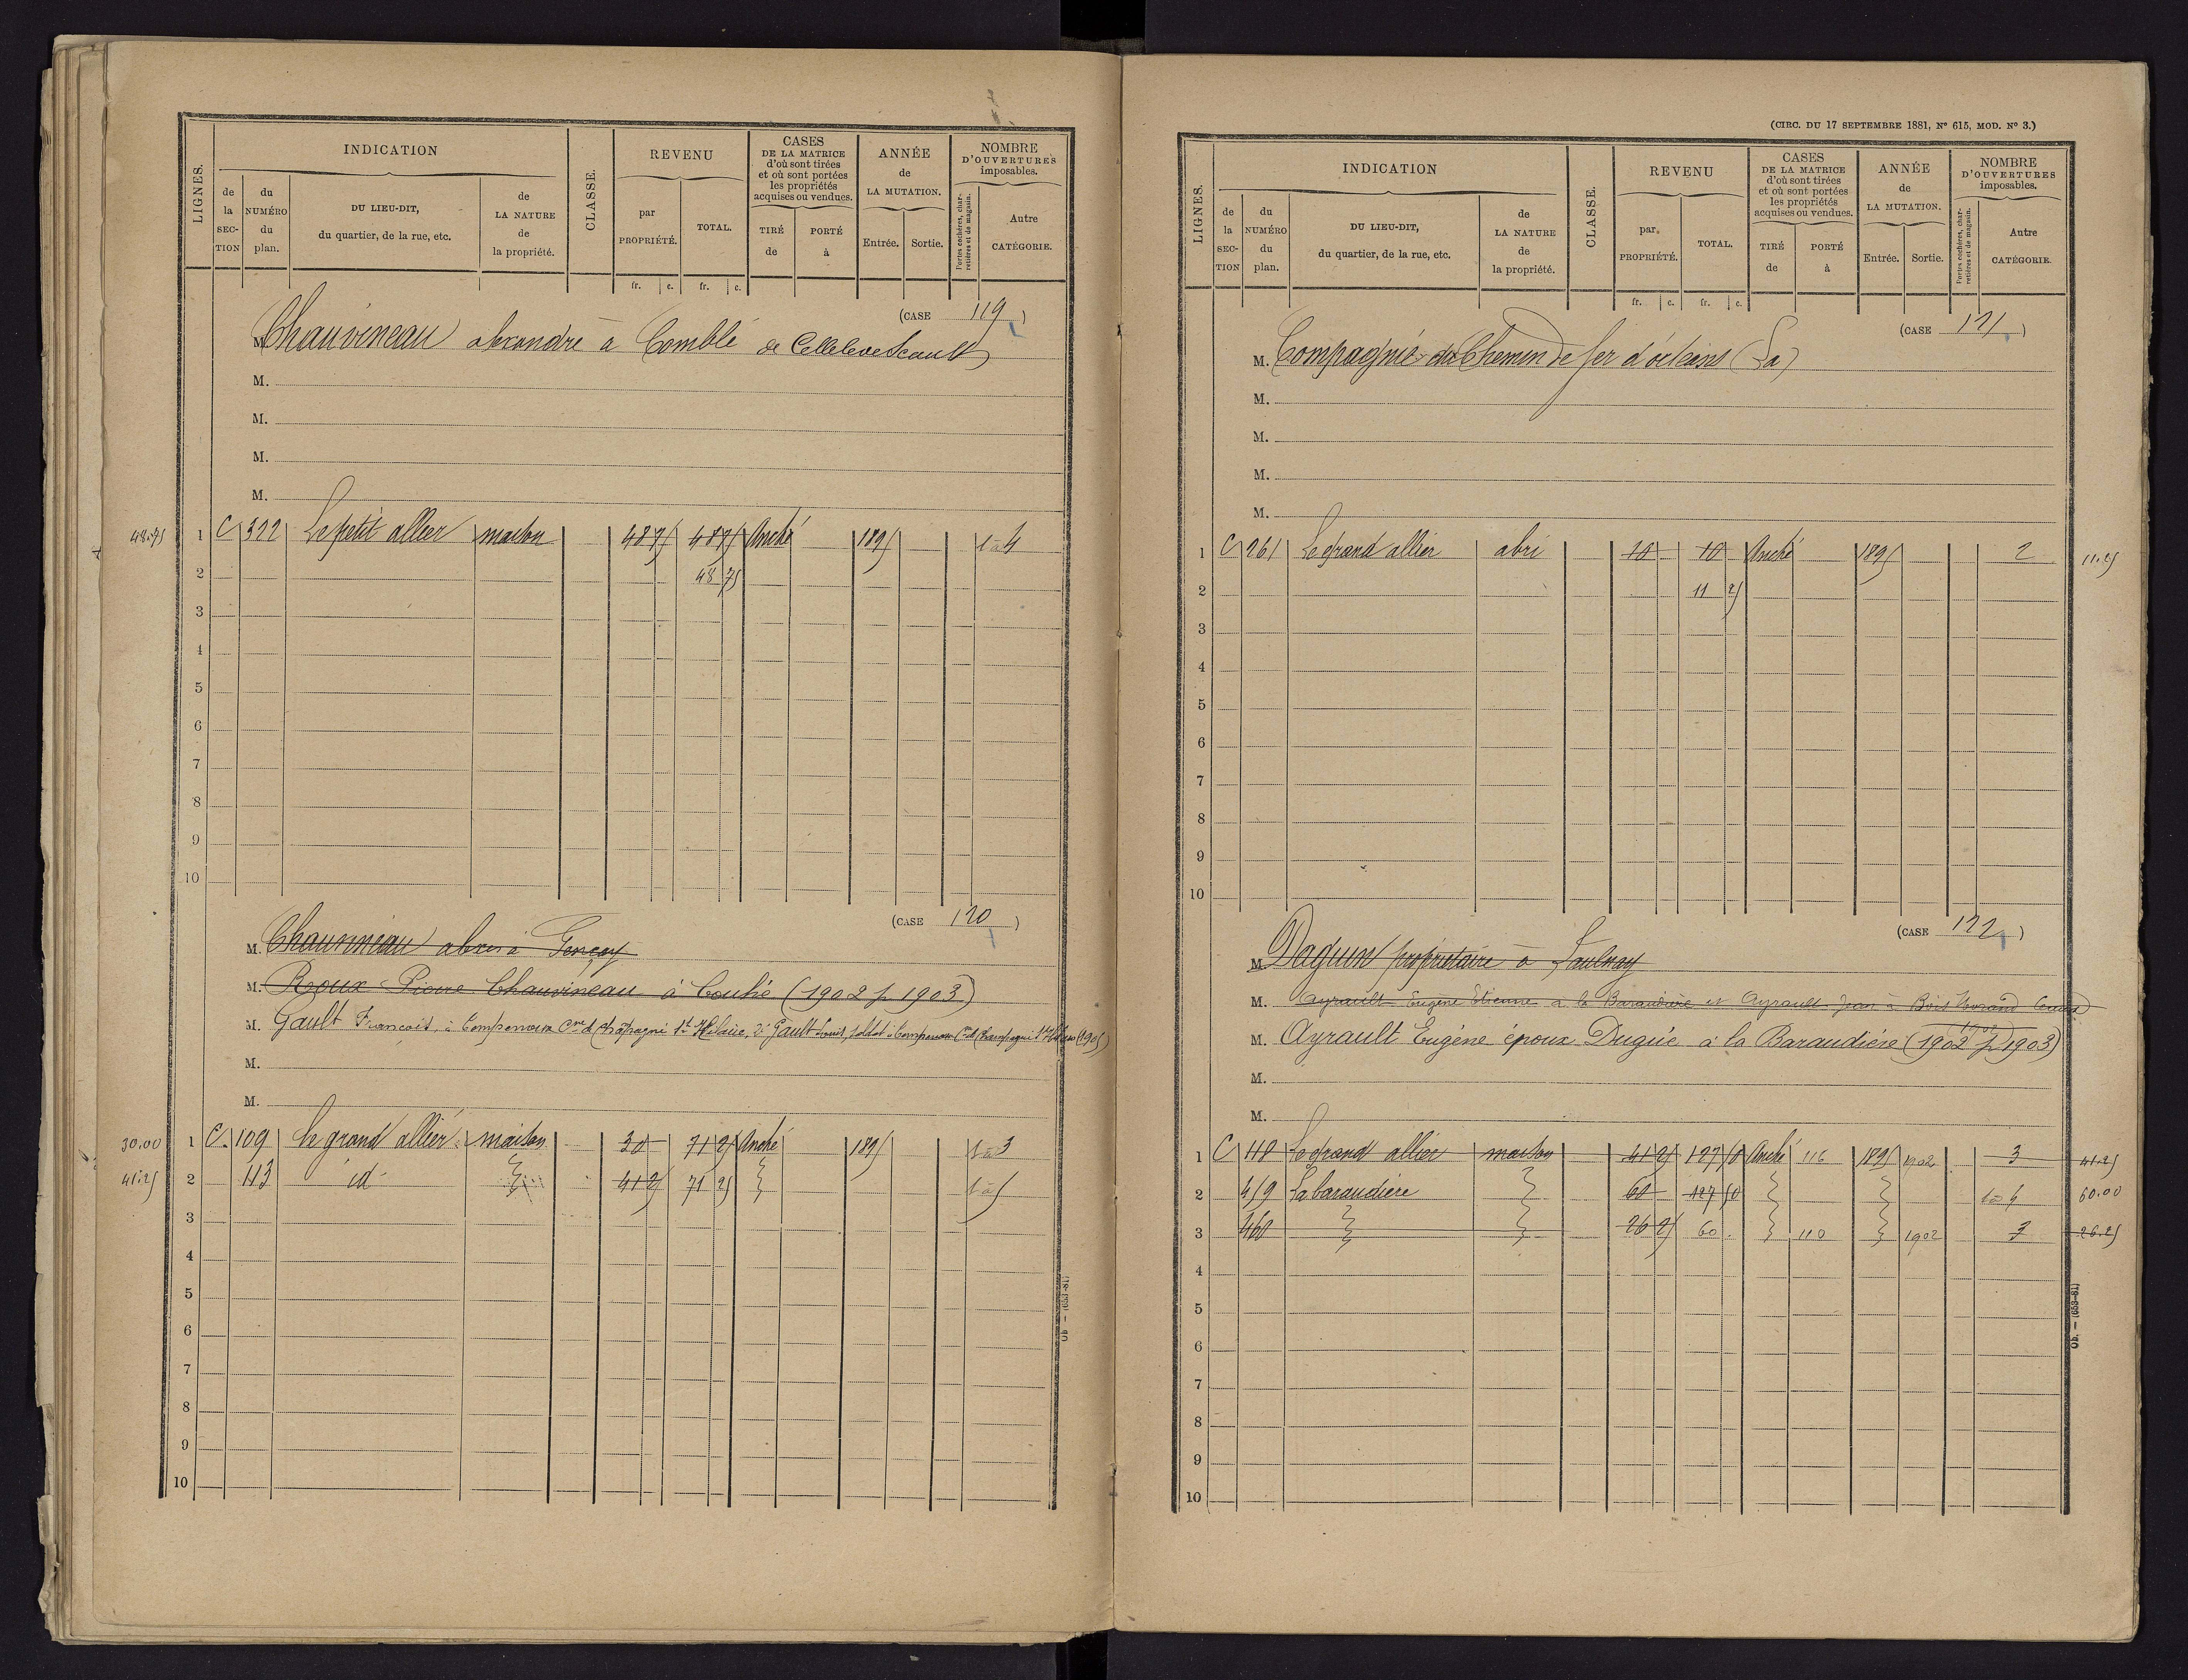 LIGNES.
INDICATION
de la SECTION
du NUMÉRO du plan.
DU LIEU-DIT, du quartier, de la rue, etc.
de LA NATURE de la propriété.
CLASSE.
REVENU
par PROPRIÉTÉ.
TOTAL.
CASES DE LA MATRICE d'où sont tirées et où sont portées les propriétés acquises ou vendues.
TIRÉ de
PORTÉ à
ANNÉE de LA MUTATION.
Entrée.
Sortie.
NOMBRE D'OUVERTURES imposables.
Portes cochères, charretières et de magasin.
Autre CATÉGORIE.
fr. c. fr. c.
(CASE 119)
M. Chauvineau à Comblé de Cellelevescault
M.
M.
M.
M.
48.75 1 C 322 Le petit allier maison 48 75 48 75 Anché 1895 1 à 4
2 48 75
3
4
5
6
7
8
9
10
(CASE 120)
M. Chauvineau à Gençay
M. Roux Pierre Chauvineau à Couhé (1902 p 1903)
M. Gault François, à Cne d Champagné St Hilaire, 2° Gault Louis, soldat à Cne d Champagné St Hilaire (1905)
M.
M.
30.00 1 C. 109 le grand allier maison 30 71 25 Anché 1895 1 à 3
41.25 2 113 id 41 25 71 25 1 à 5
3
4
5
6
7
8
9
10
Ob. — (653-81)
(CIRC. DU 17 SEPTEMBRE 1881, N° 615, MOD. N° 3.)
LIGNES.
INDICATION
de la SECTION
du NUMÉRO du plan.
DU LIEU-DIT, du quartier, de la rue, etc.
de LA NATURE de la propriété.
CLASSE.
REVENU
par PROPRIÉTÉ.
TOTAL.
CASES DE LA MATRICE d'où sont tirées et où sont portées les propriétés acquises ou vendues.
TIRÉ de
PORTÉ à
ANNÉE de LA MUTATION.
Entrée.
Sortie.
NOMBRE D'OUVERTURES imposables.
Portes cochères, charretières et de magasin.
Autre CATÉGORIE.
fr. c. fr. c.
(CASE 121)
M. Compagnie du Chemin de fer d'orléans (La)
M.
M.
M.
M.
1 C 261 Le grand allier abri 10 10 Anché 1895 2 11.25
2 11 25
3
4
5
6
7
8
9
10
(CASE 122)
M. Daguin propriétaire à Saulnay
M. Ayrault Eugène Etienne à la Baraudière et Ayrault Jean à Bois
1902
M. Ayrault Eugène époux Dugué à la Baraudière (1902 p 1903)
M.
M.
1 C 110 Le grand allier maison 41 25 127 50 Anché 116 1895 1902 3 41.25
2 459 La baraudière 60 127 50 1 à 4 60.00
3 460 26 25 60 110 1902 3 26.25
4
5
6
7
8
9
10
Ob. — (653-81)